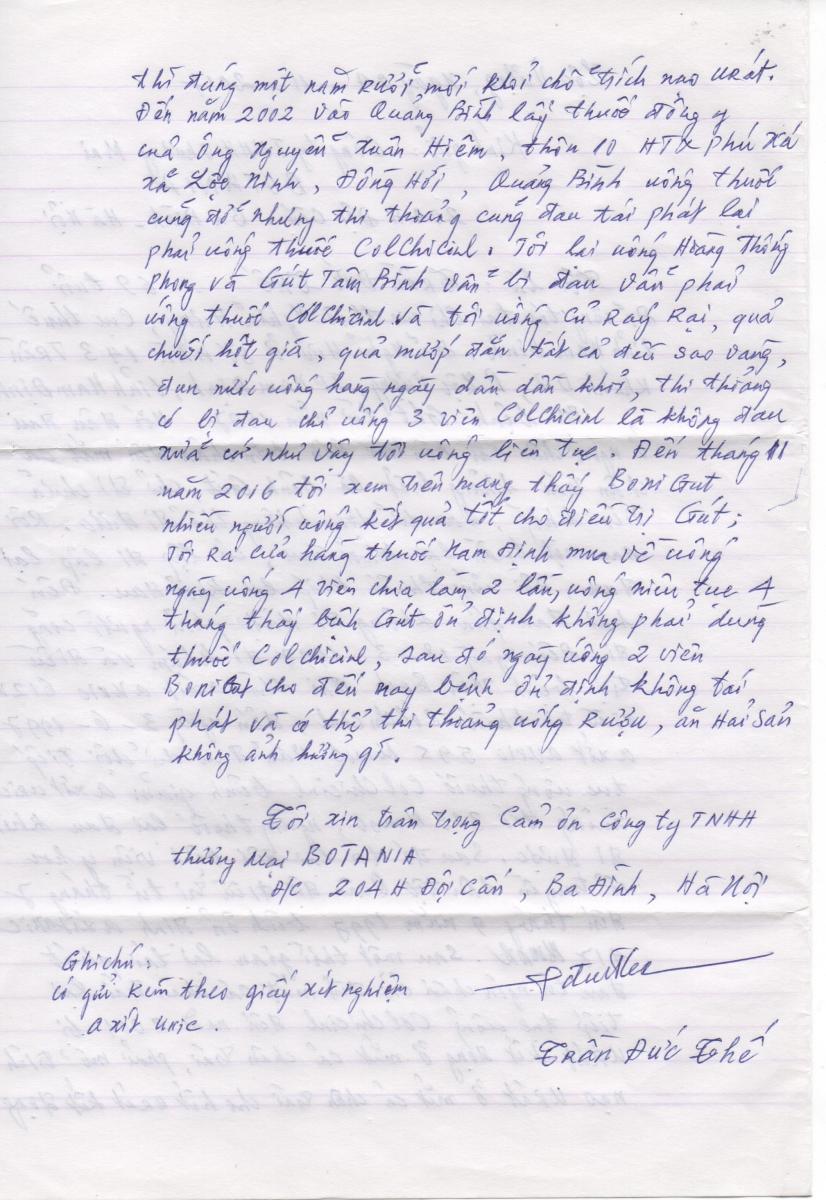 thì đúng một năm rưỡi mới khỏi chỗ trích nạo Urát.
Đến năm 2002 vào Quảng Bình lấy thuốc đông y
của ông Nguyễn Xuân Hiêm, thôn 10 HTX Phú Xá
xã Lộc Ninh, Đồng Hới, Quảng Bình uống thuốc
cũng đỡ nhưng thi thoảng cũng đau tái phát lại
phải uống thuốc Colchicinl. Tôi lại uống Hoàng Thống
Phong và Gút Tâm Bình vẫn bị đau vẫn phải
uống thuốc Colchicinl và tôi uống củ Ráy Rại, quả
chuối hột giã, quả mướp đắng tất cả đều sao vàng,
đun nước uống hàng ngày dần dần khỏi, thi thoảng
có bị đau chỉ uống 3 viên Colchicinl là không đau
nữa cứ như vậy tôi uống liên tục. Đến tháng 11
năm 2016 tôi xem trên mạng thấy BoniGut
nhiều người uống kết quả tốt cho điều trị Gút;
Tôi ra cửa hàng thuốc Nam Định mua về uống
ngày uống 4 viên chia làm 2 lần, uống niên tục 4
tháng thấy bệnh Gút ổn định không phải dùng
thuốc Colchicinl, sau đó ngày uống 2 viên
BoniGut cho đến nay bệnh ổn định không tái
phát và có thể thi thoảng uống Rượu, ăn Hải Sản
không ảnh hưởng gì.
Tôi xin trân trọng Cảm ơn Công ty TNHH
thương Mại BOTANIA
Đ/C 204H Đội Cấn, Ba Đình, Hà Nội
Ghi chú:
có gửi kèm theo giấy xét nghiệm
axít uric.
Trần Đức Thế